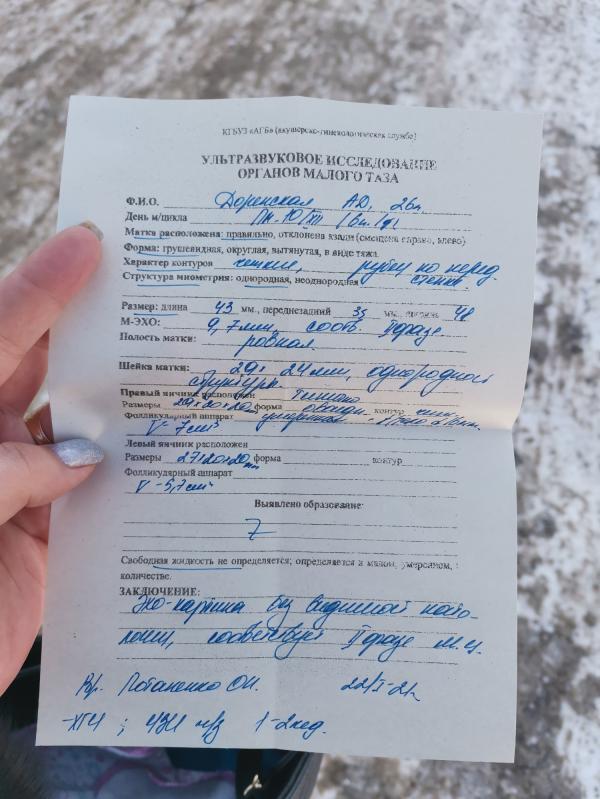 КГБУЗ «АГБ» (акушерско-гинекологическая служба)
УЛЬТРАЗВУКОВОЕ ИССЛЕДОВАНИЕ
ОРГАНОВ МАЛОГО ТАЗА
Ф.И.О. Доренская АД, 26л
День м/цикла П.м. 10/XII
Матка расположена: правильно, отклонена кзади (смещена вправо, влево)
Форма: грушевидная, округлая, вытянутая, в виде тяжа
Характер контуров четкие, рубец по перед.
Структура миометрия: однородная, неоднородная стенке
Размер: длина 43 мм., переднезадний 35 мм., ширина 48
М-ЭХО: 9,7мм, соотв. II фазе
Полость матки: ровная.
Шейка матки: 29х24мм, однородной
структуры
Правый яичник расположен типично
Размеры 29х20х20 форма овоидн контур
Фолликулярный аппарат
V- 7см³
Левый яичник расположен
Размеры 27х20х20мм форма контур
Фолликулярный аппарат
V-5,7см³
Выявлено образование:
Свободная жидкость не определяется; определяется в малом, умеренном,
количестве.
ЗАКЛЮЧЕНИЕ:
Эхо-картина без видимой пато-
логии, соответствует II фазе м.ц.
Вр. Потапенко ОН. 22/I-21г
-ХГЧ ; УЗИ ч/з 1-2нед.